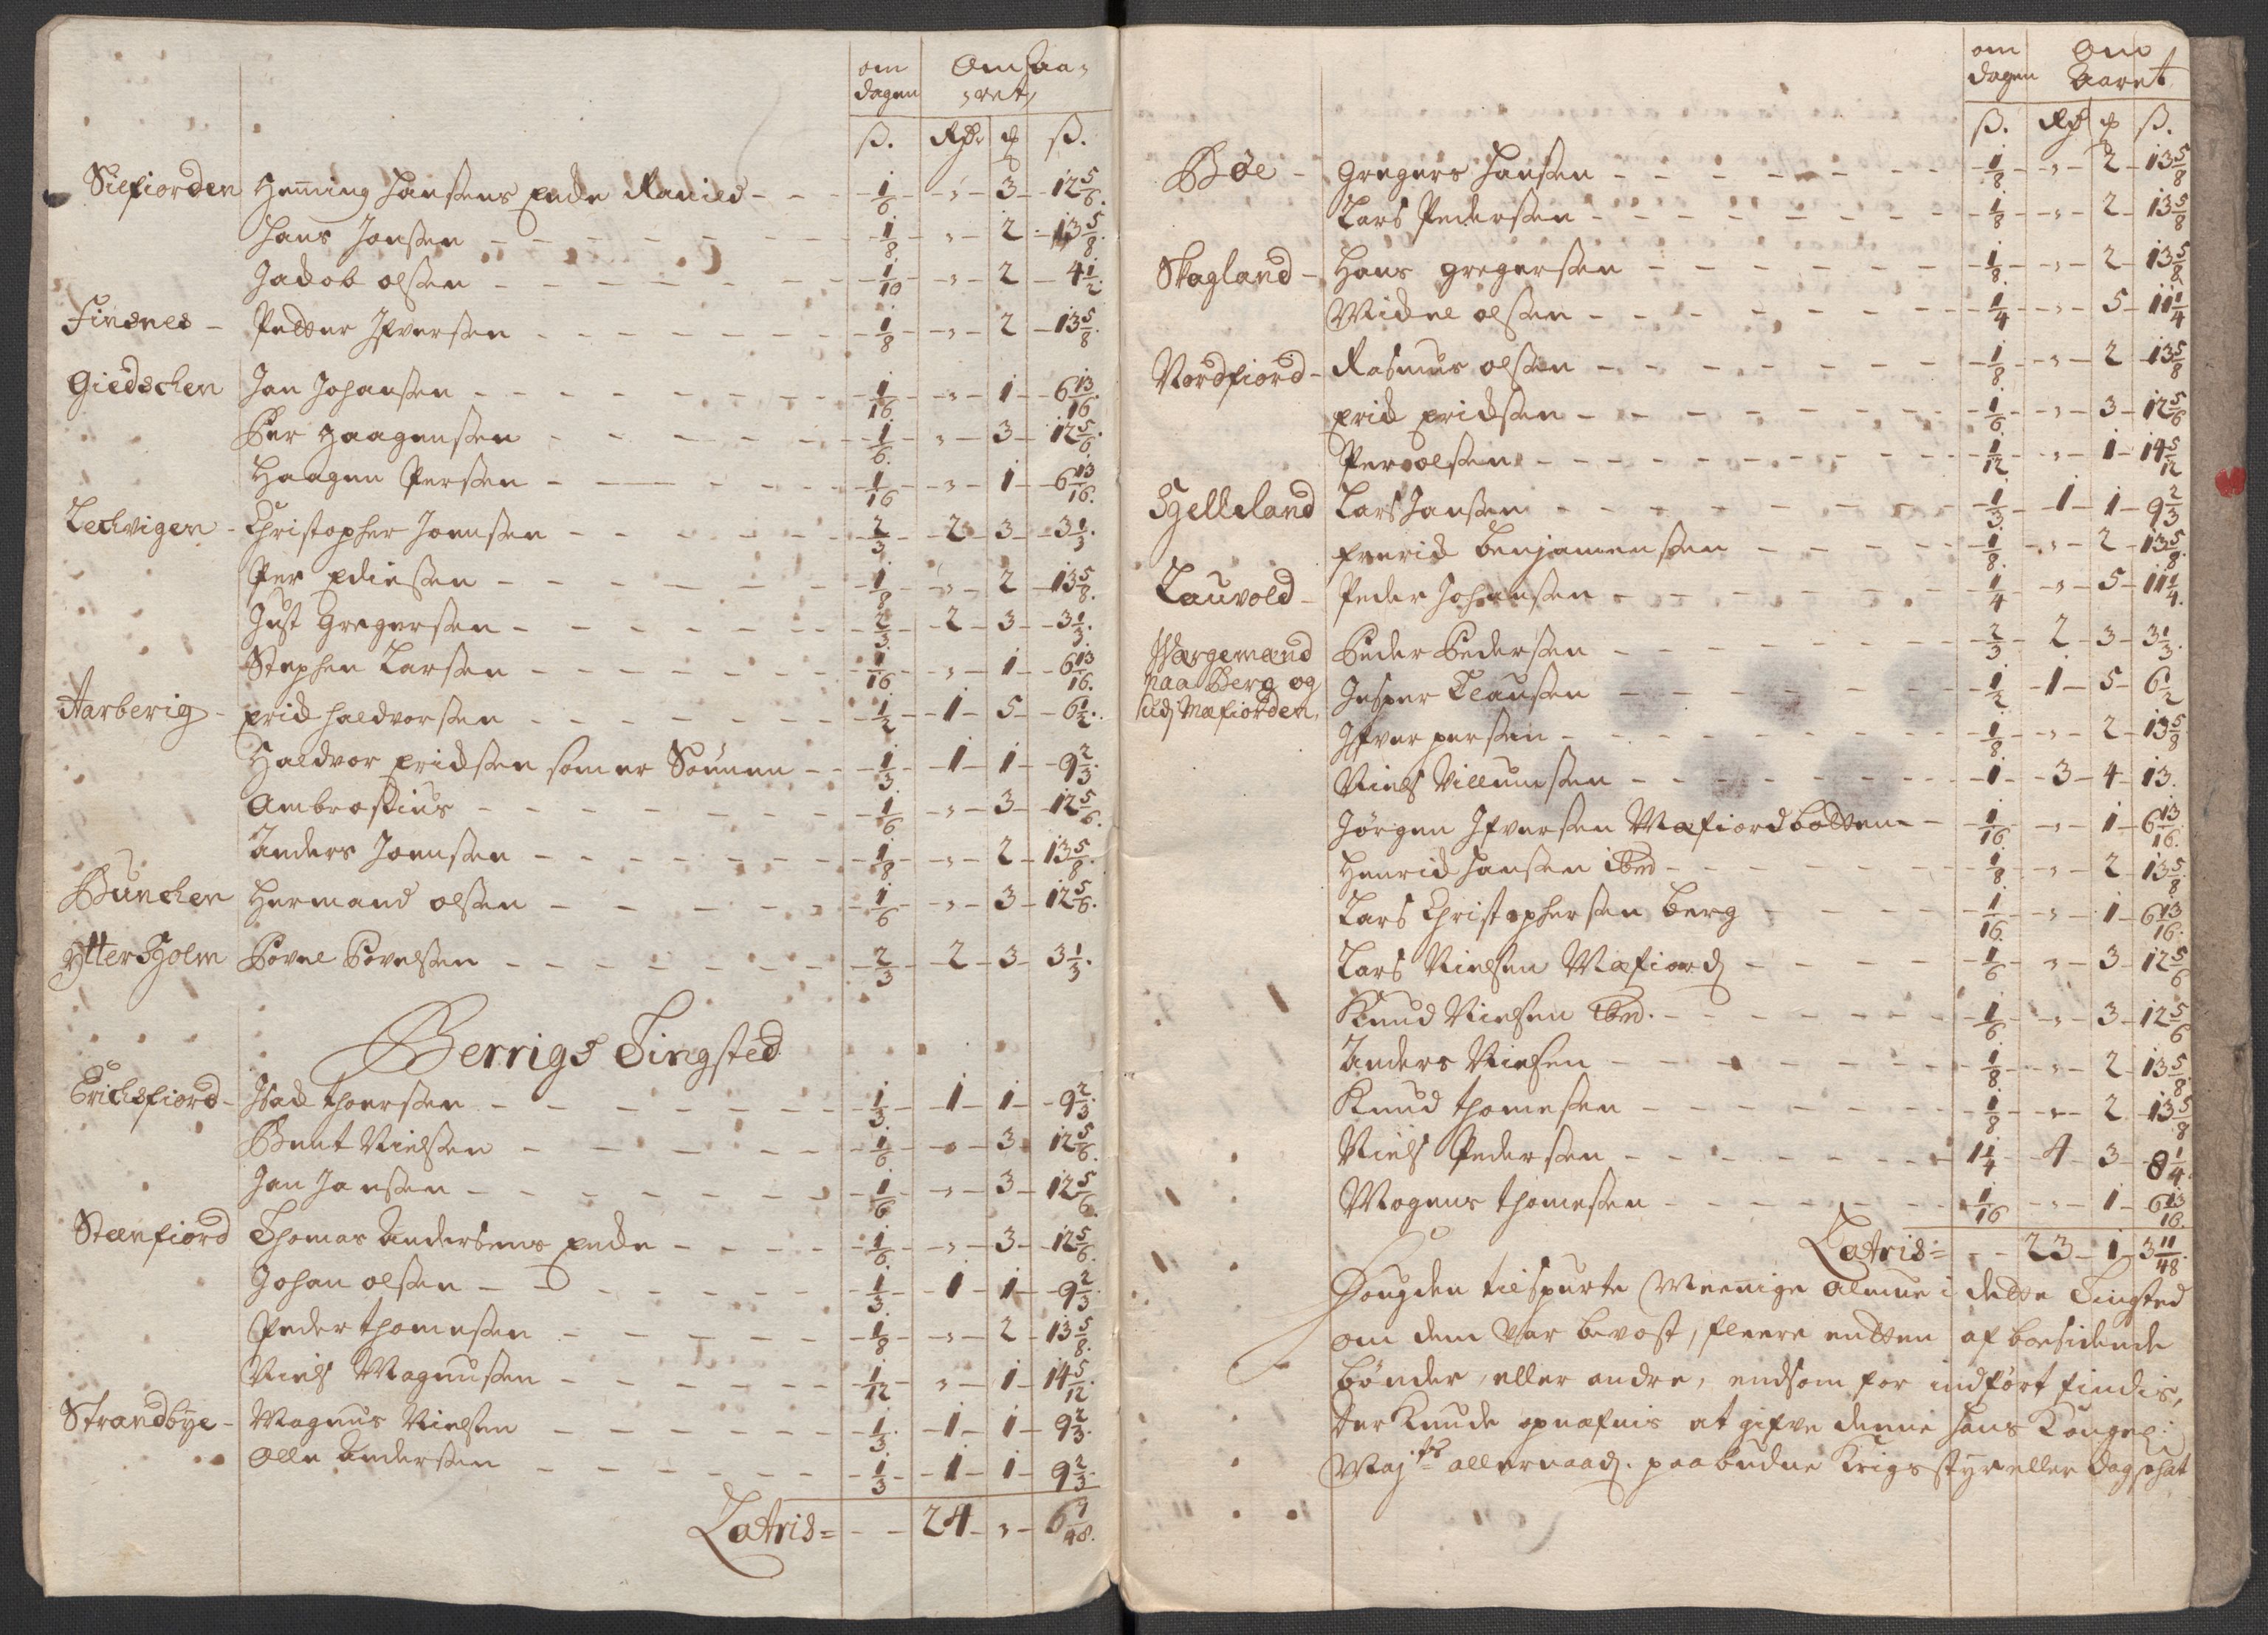 om dagen | Om Aaret,
ß. | Rdr | ₰ | ß.
Silfiorden Hening Hansens Encke Raniid - 1/6 - „ - 3 - 12 5/6.
Hans Jonsen - 1/8 - „ - 2 - 13 5/8.
Jacob olsen - 1/10 - „ - 2 - 4 1/2.
Finsnes - Petter Ifversen - 1/8 - „ - 2 - 13 5/8.
Giedschen Jan Johansen - 1/16 - „ - 1 - 6 13/16.
Per Haagensen - 1/6 - „ - 3 - 12 5/6.
Haagen Persen - 1/16 - „ - 1 - 6 13/16.
Lechvigen - Christopher Joensen - 2/3 - 2 - 3 - 3 1/3.
Per Ediesen - 1/8 - „ - 2 - 13 5/8.
Just Gregersen - 2/3 - 2 - 3 - 3 1/3.
Stephen Larsen - 1/16 - „ - 1 - 6 13/16.
Aarberig - Erich Haldvorsen - 1/2 - 1 - 5 - 6 1/2.
Haldvor Erichsen som er Sønnen - 1/3 - 1 - 1 - 9 2/3.
Ambrosius - 1/6 - „ - 3 - 12 5/6.
Anders Joensen - 1/8 - „ - 2 - 13 5/8.
Bunchen Hermand olsen - 1/6 - „ - 3 - 12 5/6.
Ytter Holm Povel Povelsen - 2/3 - 2 - 3 - 3 1/3.
Berrigs Tingsted
Erichsfiord - Isac thoersen - 1/3 - 1 - 1 - 9 2/3.
Bent Nielsen - 1/6 - „ - 3 - 12 5/6.
Jan Jansen - 1/6 - „ - 3 - 12 5/6.
Steenfiord Thomas Andersens Encke - 1/6 - „ - 3 - 12 5/6.
Johan olsen - 1/3 - 1 - 1 - 9 2/3.
Peder thomesen - 1/8 - „ - 2 - 13 5/8.
Niels Magnusen - 1/12 - „ - 1 - 14 5/12.
Strandbye - Magnus Nielsen - 1/3 - 1 - 1 - 9 2/3.
Olle Andersen - 1/3 - 1 - 1 - 9 2/3.
Lateris = - - 24 - „ - 6 7/48.
om dagen | Om Aaret
ß. | Rdr | ₰ | ß.
Bøe - Gregers Hansen - 1/8 - „ - 2 - 13 5/8
Lars Pedersen - 1/8 - „ - 2 - 13 5/8
Skagland - Hans gregersen - 1/8 - „ - 2 - 13 5/8
Michel olsen - 1/4 - „ - 5 - 11 1/4
Nordfiord - Rasmus olsen - 1/8 - „ - 2 - 13 5/8
Erich Erichsen - 1/6 - „ - 3 - 12 5/6
Per olsen - 1/12 - „ - 1 - 14 5/12
Hjelleland Lars Jansen - 1/3 - 1 - 1 - 9 2/3
frerich benjamensen - 1/8 - „ - 2 - 13 5/8.
Lauvold - Peder Johansen - 1/4 - „ - 5 - 11 1/4.
Wærgemænd Peder Pedersen - 2/3 - 2 - 3 - 3 1/3.
paa Berg og Jesper Clausen - 1/2 - 1 - 5 - 6 1/2
udj Mæfiorden, Ifver persen - 1/8 - „ - 2 - 13 5/8
Niels Villumsen - 1 - 3 - 4 - 13.
Jørgen Ifversen Mæfiordbotten - 1/16 - „ - 1 - 6 13/16.
Henrich Hansen ibid - 1/8 - „ - 2 - 13 5/8.
Lars Christophersen berg - 1/16 - „ - 1 - 6 13/16.
Lars Nielsen Mæfiord - 1/6 - „ - 3 - 12 5/6
Knud Nielsen ibid. - 1/6 - „ - 3 - 12 5/6
Anders Nielsen - 1/8 - „ - 2 - 13 5/8.
Knud thomesen - 1/8 - „ - 2 - 13 5/8
Niels Pedersen - 1 1/4 - 4 - 3 - 8 1/4.
Mogens thomesen - 1/16 - „ - 1 - 6 13/16.
Lateris = - - 23 - 1 - 3 11/48.
Fougden tilspurte Meenige Almue i dette Tingsted
om dem var bevost, fleere enten af boesidende
bønder, eller andre, endsom for indført findis,
der kunde opnæfnis at gifve denne Hans Kongel:
Maj:ts allernaad: paabudne Krigsstyr eller dagschat